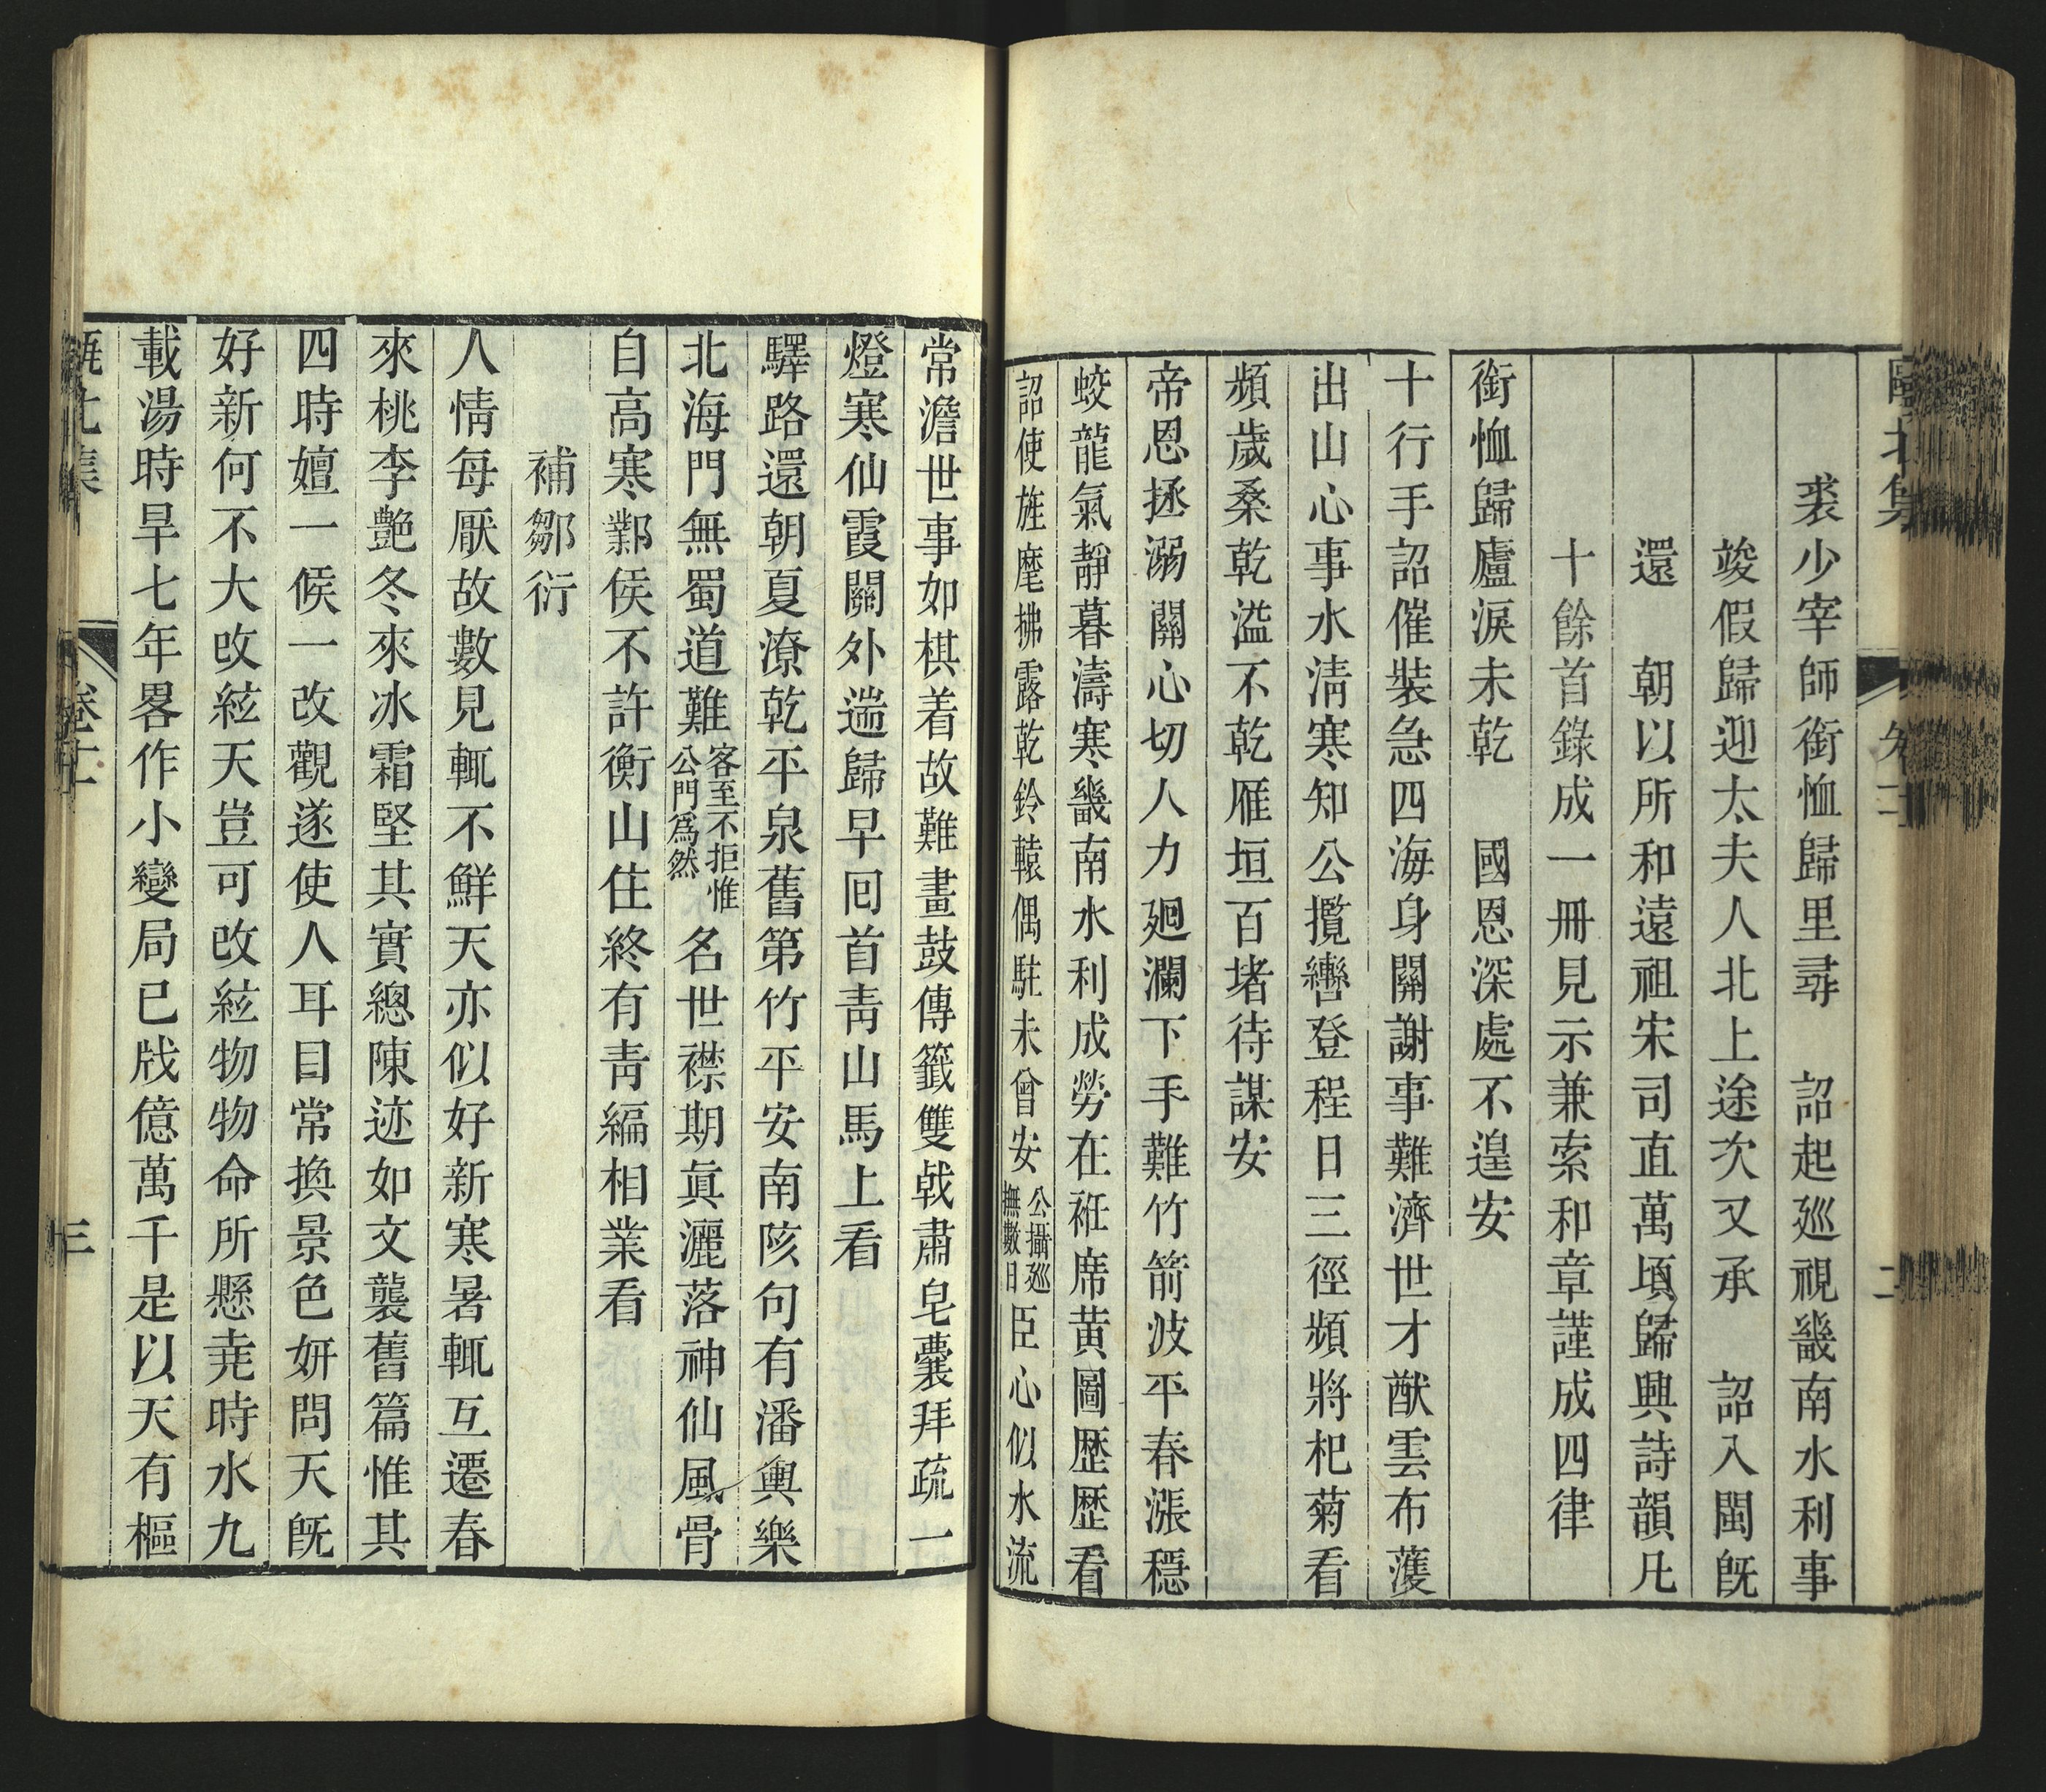 裘少宰師銜恤歸里尋　詔起巡視畿南水利事
竣假歸迎太夫人北上途次又承　詔入閩旣
還　朝以所和遠祖宋司直萬頃歸興詩韻凡
十餘首錄成一冊見示兼索和章謹成四律
銜恤歸廬淚未乾　國恩深處不遑安
十行手詔催裝急四海身關謝事難濟世才猷雲布濩
出山心事水淸寒知公攬轡登程日三徑頻將杞菊看
頻歲桑乾溢不乾雁垣百堵待謀安
帝恩拯溺關心切人力廻瀾下手難竹箭波平春漲穩
蛟龍氣靜暮濤寒畿南水利成勞在袵席黃圖歷歷看
詔使旌麾拂露乾鈴轅偶駐未曾安公攝巡撫數日臣心似水流
常澹世事如棋着故難畫鼓傳籤雙戟肅皂囊拜疏一
燈寒仙霞關外遄歸早囘首靑山馬上看
驛路還朝夏潦乾平泉舊第竹平安南陔句有潘輿樂
北海門無蜀道難客至不拒惟公門爲然名世襟期眞灑落神仙風骨
自高寒鄴侯不許衡山住終有靑編相業看
補鄒衍
人情每厭故數見輒不鮮天亦似好新寒暑輒互遷春
來桃李艷冬來冰霜堅其實總陳迹如文襲舊篇惟其
四時嬗一候一改觀遂使人耳目常換景色妍問天旣
好新何不大改絃天豈可改絃物物命所懸堯時水九
載湯時旱七年畧作小變局已戕億萬千是以天有樞